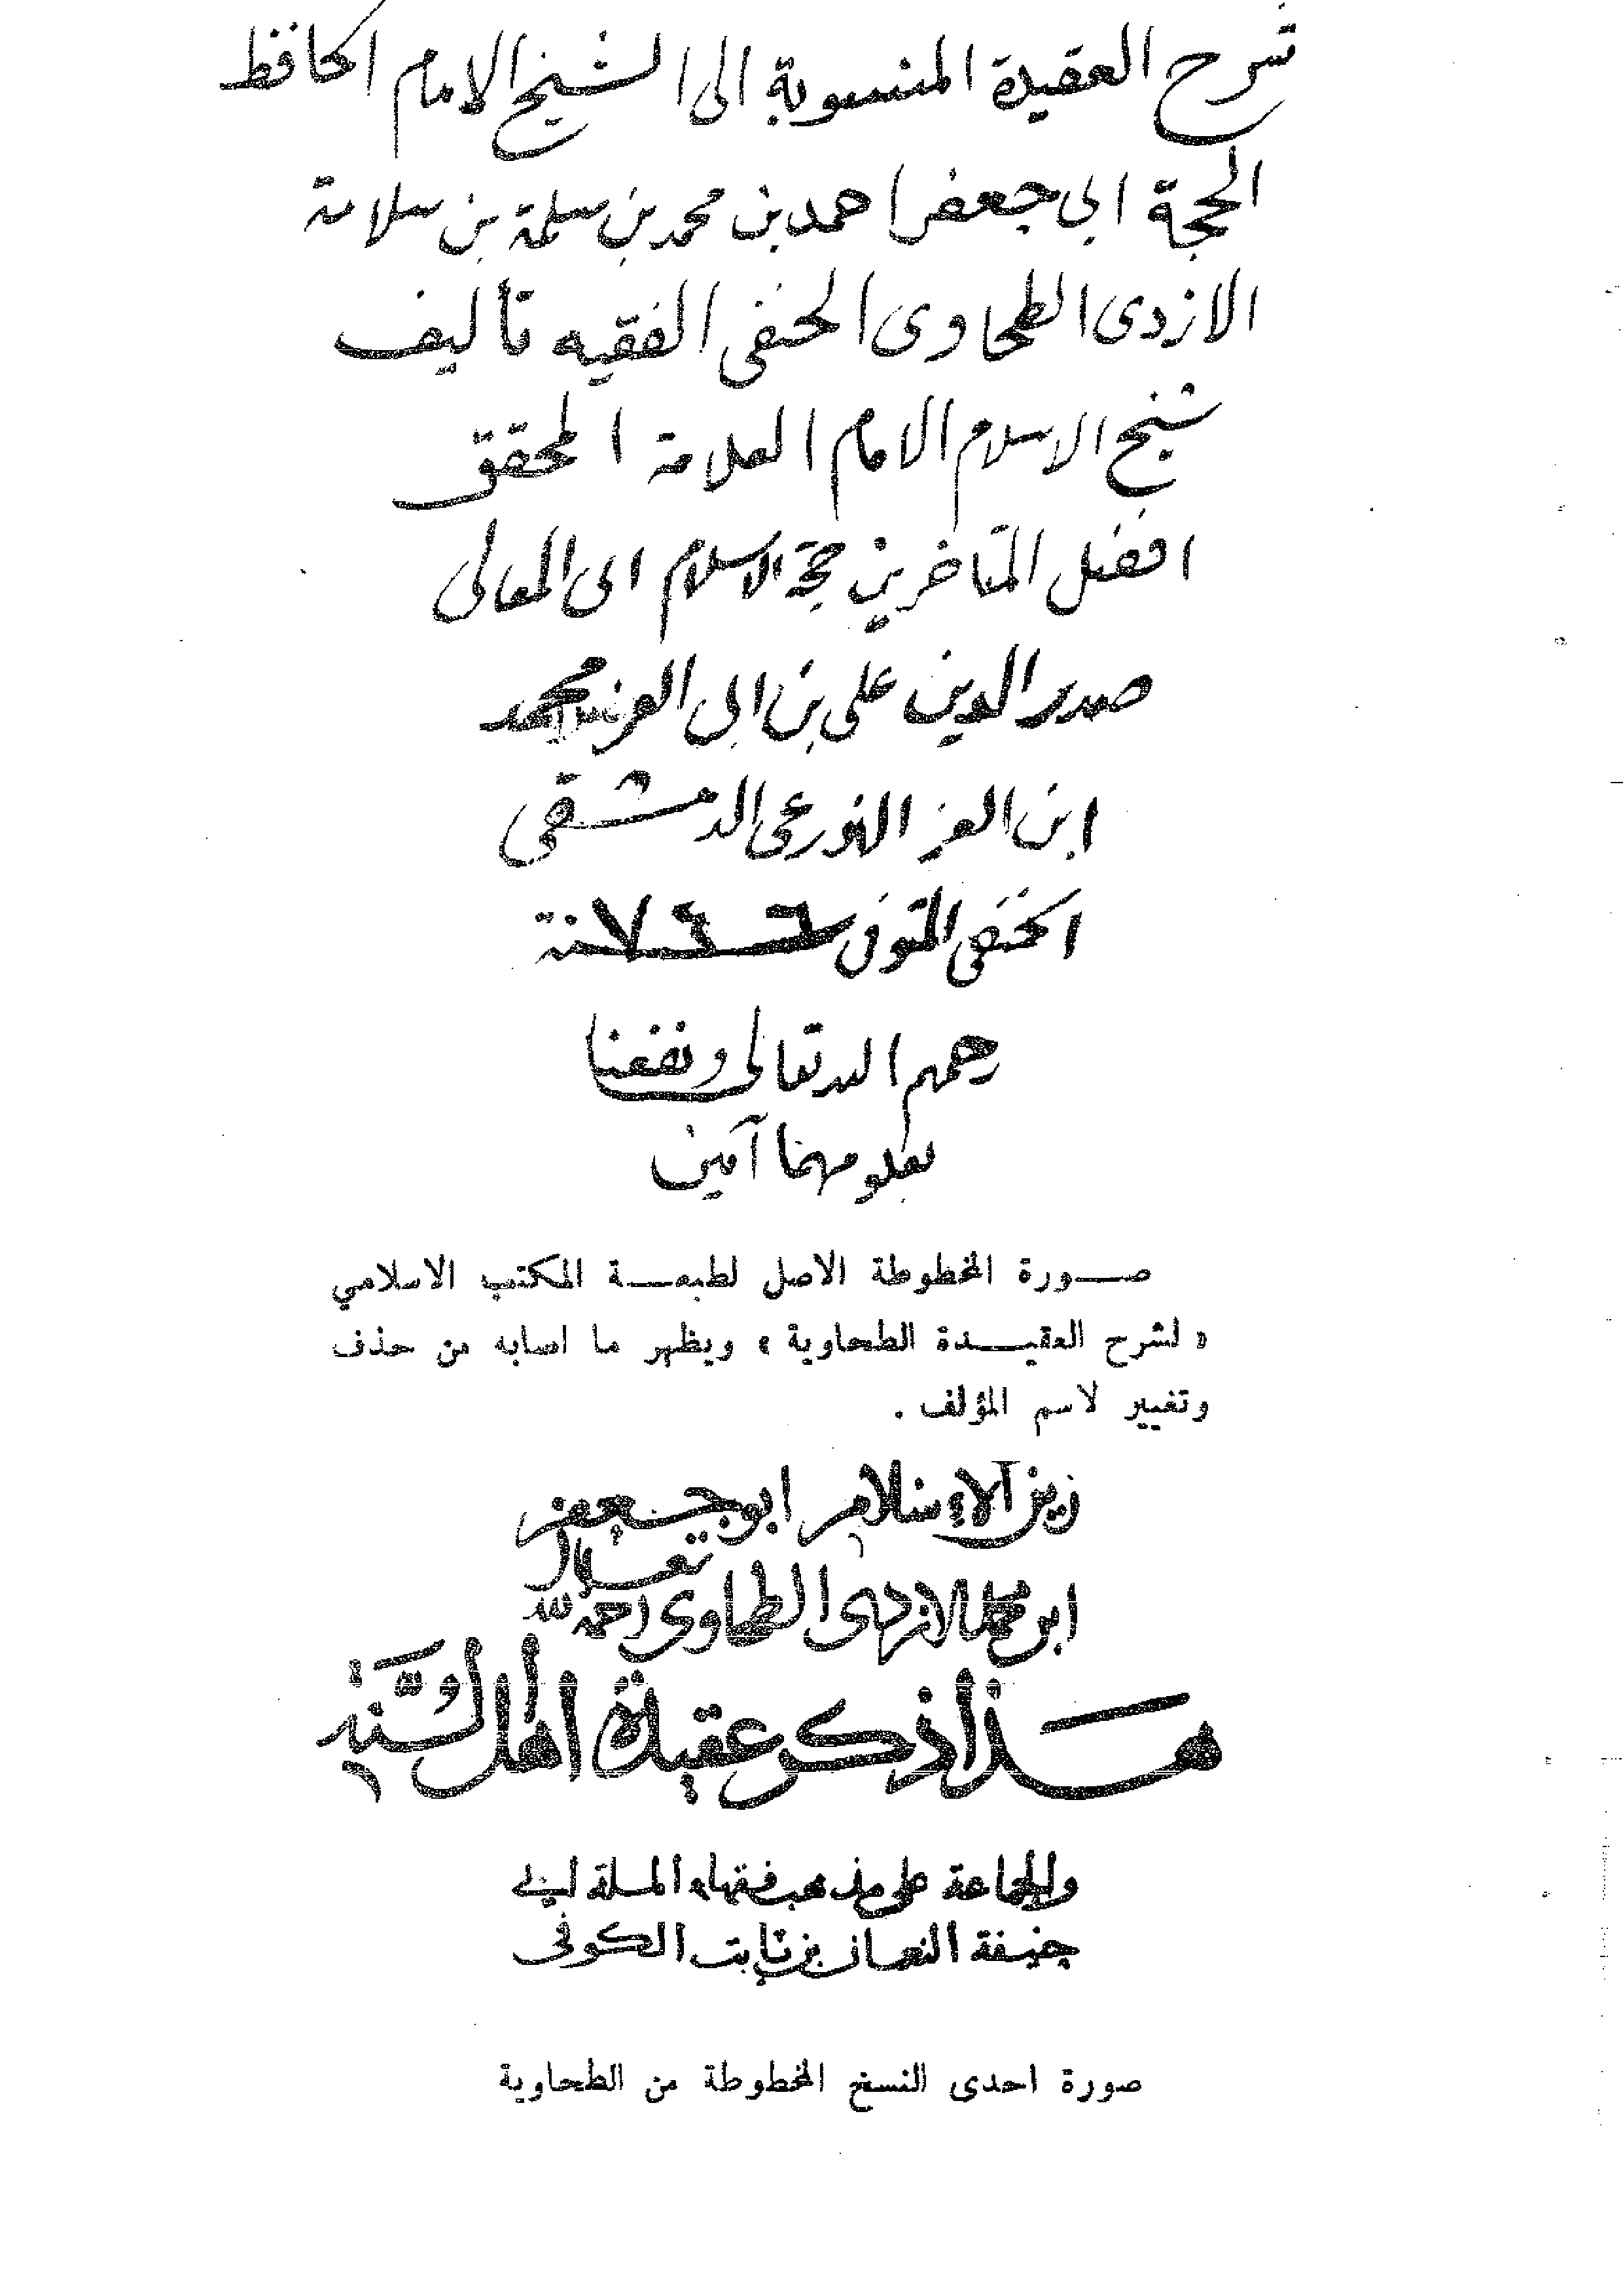 شرح العقيدة المنسوبة الى الشيخ الامام الحافظ
الحجة ابى جعفر احمد بن محمد بن سلمة بن سلامة
الازدى الطحاوى الحنفى الفقيه تأليف
شيخ الاسلام الامام العلامة المحقق
افضل المتاخرين حجة الاسلام ابى المعالى
صدر الدين على بن ابى العز بن محمد
ابن العز الاذرعى الدمشقى
الحنفى المتوفى سنة
رحمهم الله تعالى ونفعنا
بعلومهما آمين
صـورة المخطوطة الاصل لطبعـة المكتب الاسلامي
« لشرح العقيـدة الطحاوية » ويظهر ما اصابه من حذف
وتغيير لاسم المؤلف .
زين الاسلام ابو جعفر
ابن محمد الازدى الطحاوى رحمه الله تعالى
هذا ذكر عقيدة أهل السُّنة
والجماعة على مذهب فقهاء الملة ابى
حنيفة النعمان بن ثابت الكوفى
صورة احدى النسخ المخطوطة من الطحاوية